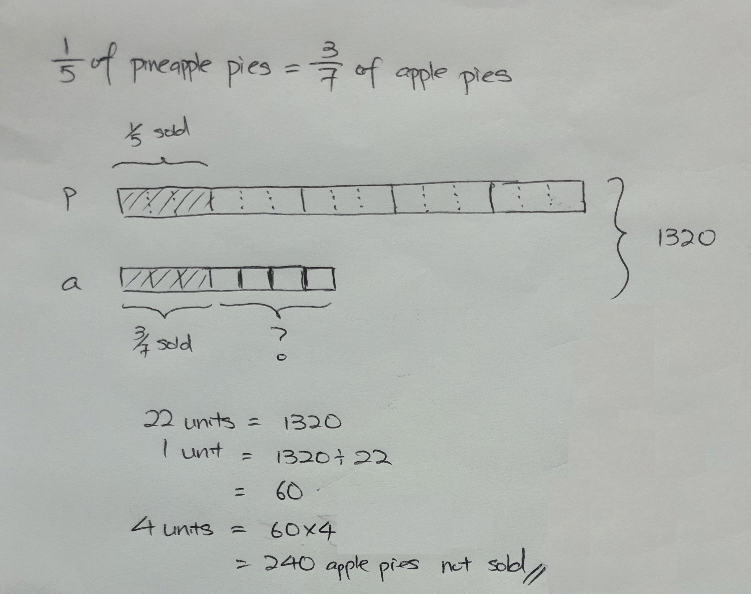 1/5 of pineapple pies = 3/7 of apple pies
1/5 sold
P
1320
a
3/7 sold
?
22 units = 1320
1 unit = 1320 ÷ 22
= 60
4 units = 60×4
= 240 apple pies not sold //